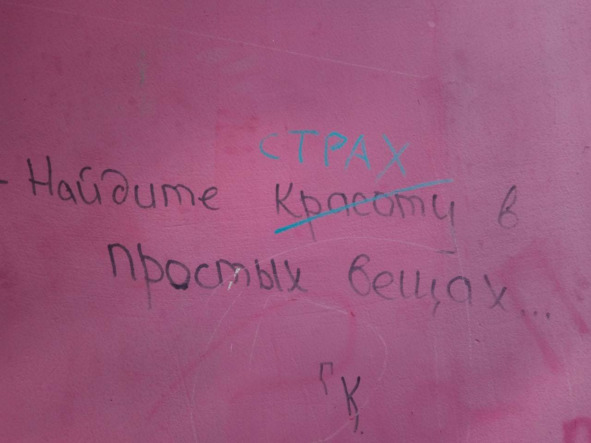 СТРАХ
- Найдите красоту в
простых вещах...
ГК